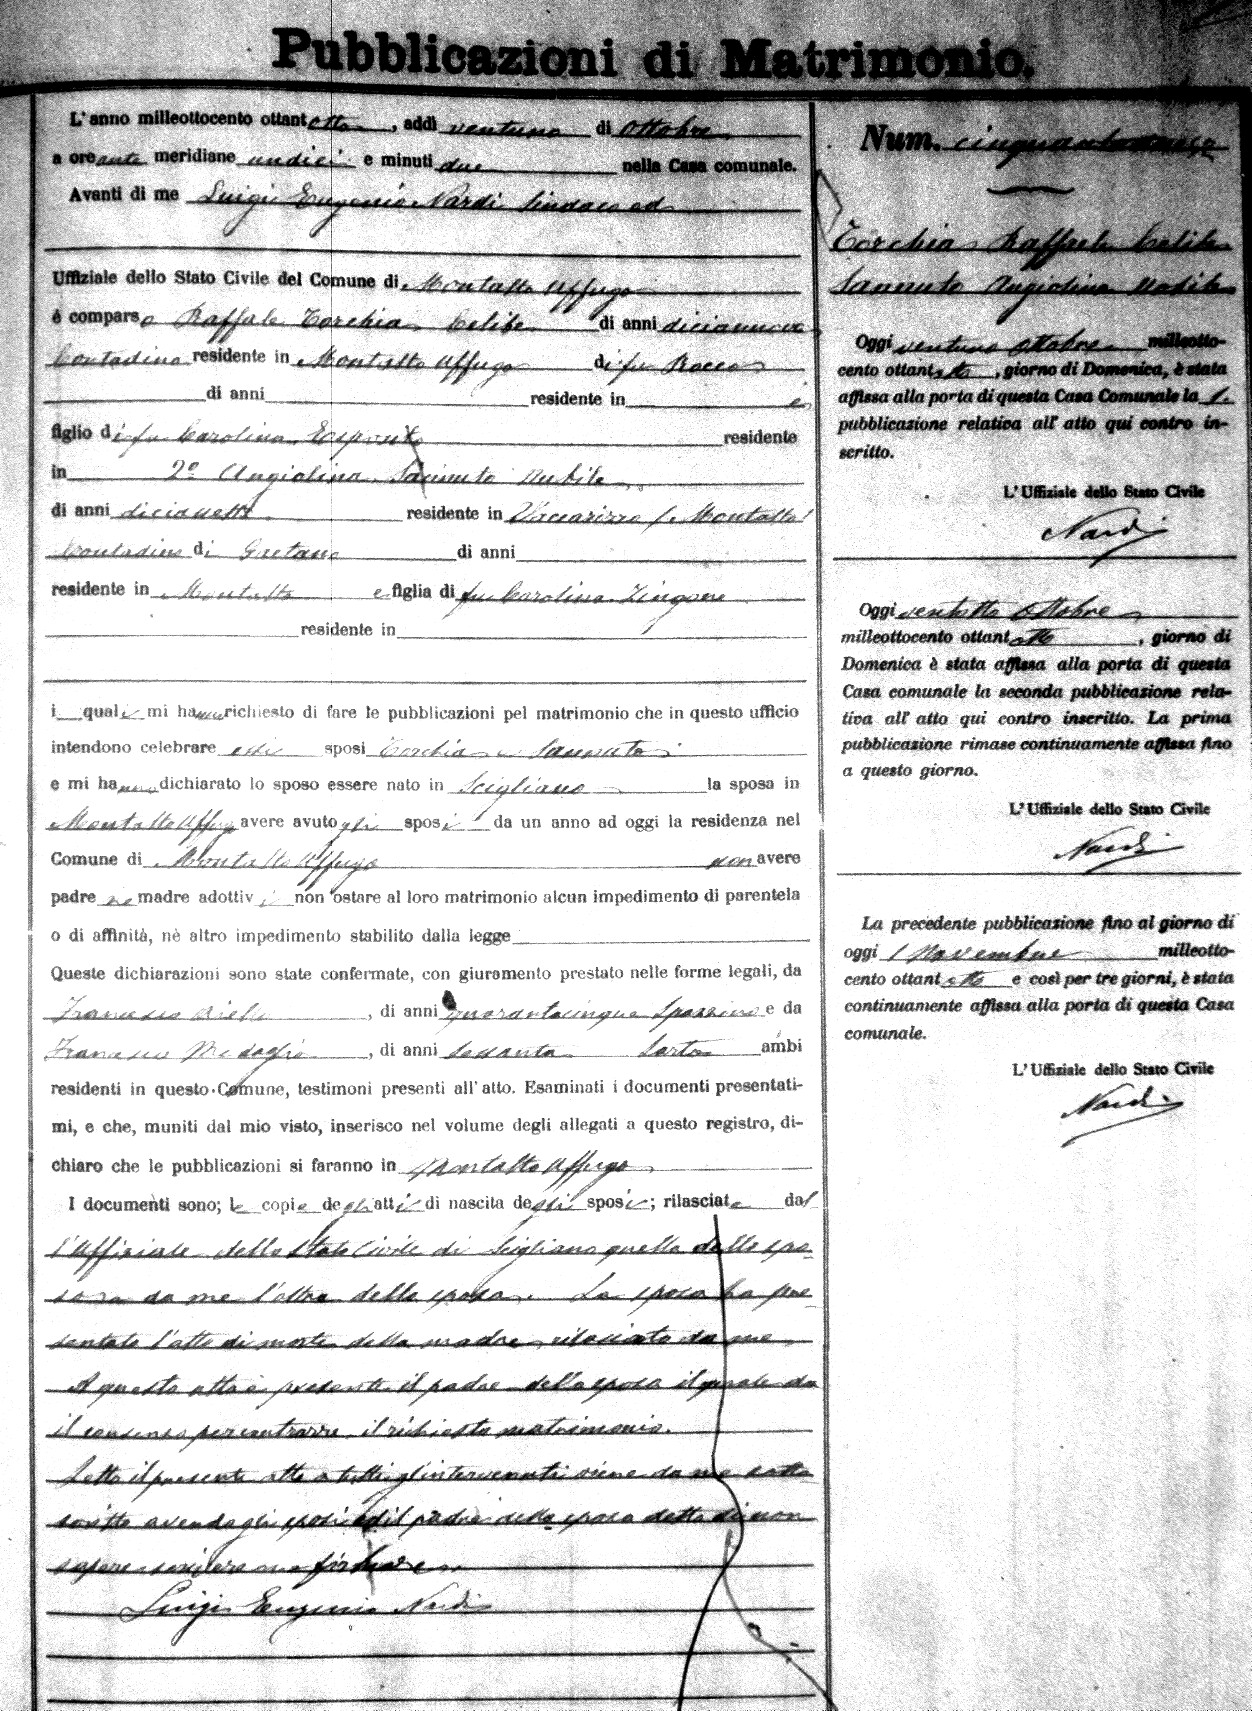 Pubblicazioni di Matrimonio.
L'anno milleottocento ottantotto, addì ventuno di Ottobre
a ore ante meridiane undici e minuti due nella Casa comunale.
Avanti di me Luigi Eugenio Nardi Sindaco ed
Uffiziale dello Stato Civile del Comune di Montalto Uffugo
è comparso Raffaele Torchia Celibe di anni diciannove
Contadino residente in Montalto Uffugo di fu Rocco
di anni residente in e
figlio di fu Carolina Esposito residente
in 2º Angiolina Sannuto Nubile
di anni diciasette residente in Vaccarizzo (Montalto)
Contadina di Gaetano di anni
residente in Montalto e figlia di fu Carolina Zingone
residente in
i quali mi hanno richiesto di fare le pubblicazioni pel matrimonio che in questo ufficio
intendono celebrare essi sposi Torchia e Sannuto
e mi hanno dichiarato lo sposo essere nato in Scigliano la sposa in
Montalto Uffugo avere avuto gli sposi da un anno ad oggi la residenza nel
Comune di Montalto Uffugo non avere
padre nè madre adottivi non ostare al loro matrimonio alcun impedimento di parentela
o di affinità, nè altro impedimento stabilito dalla legge
Queste dichiarazioni sono state confermate, con giuramento prestato nelle forme legali, da
Francesco , di anni quarantacinque Spazzino e da
Francesco Medaglia , di anni sessanta Sarto ambi
residenti in questo Comune, testimoni presenti all'atto. Esaminati i documenti presentati-
mi, e che, muniti dal mio visto, inserisco nel volume degli allegati a questo registro, di-
chiaro che le pubblicazioni si faranno in Montalto Uffugo
I documenti sono; le copie degli atti di nascita degli sposi; rilasciate dal
l'Uffiziale dello Stato Civile di Scigliano quella dello spo-
so e da me l'altra della sposa. La sposa ha pre-
sentato l'atto di morte della madre rilasciato da me
A questo atto è presente il padre della sposa il quale da
il consenso per contrarre il richiesto matrimonio.
Letto il presente atto a tutti gl'intervenuti viene da me sotto
scritto avendo gli sposi ed il padre della sposa detto di non
sapere scrivere ne firmare
Luigi Eugenio Nardi
Num.
Torchia Raffaele Celibe
Sannuto Angiolina Nubile
Oggi ventuno ottobre milleotto-
cento ottantotto, giorno di Domenica, è stata
affissa alla porta di questa Casa Comunale la 1.
pubblicazione relativa all'atto qui contro in-
scritto.
L'Uffiziale dello Stato Civile
Nardi
Oggi ventotto Ottobre
milleottocento ottantotto, giorno di
Domenica è stata affissa alla porta di questa
Casa comunale la seconda pubblicazione rela-
tiva all'atto qui contro inscritto. La prima
pubblicazione rimase continuamente affissa fino
a questo giorno.
L'Uffiziale dello Stato Civile
Nardi
La precedente pubblicazione fino al giorno di
oggi 1 Novembre milleotto-
cento ottantotto e così per tre giorni, è stata
continuamente affissa alla porta di questa Casa
comunale.
L'Uffiziale dello Stato Civile
Nardi